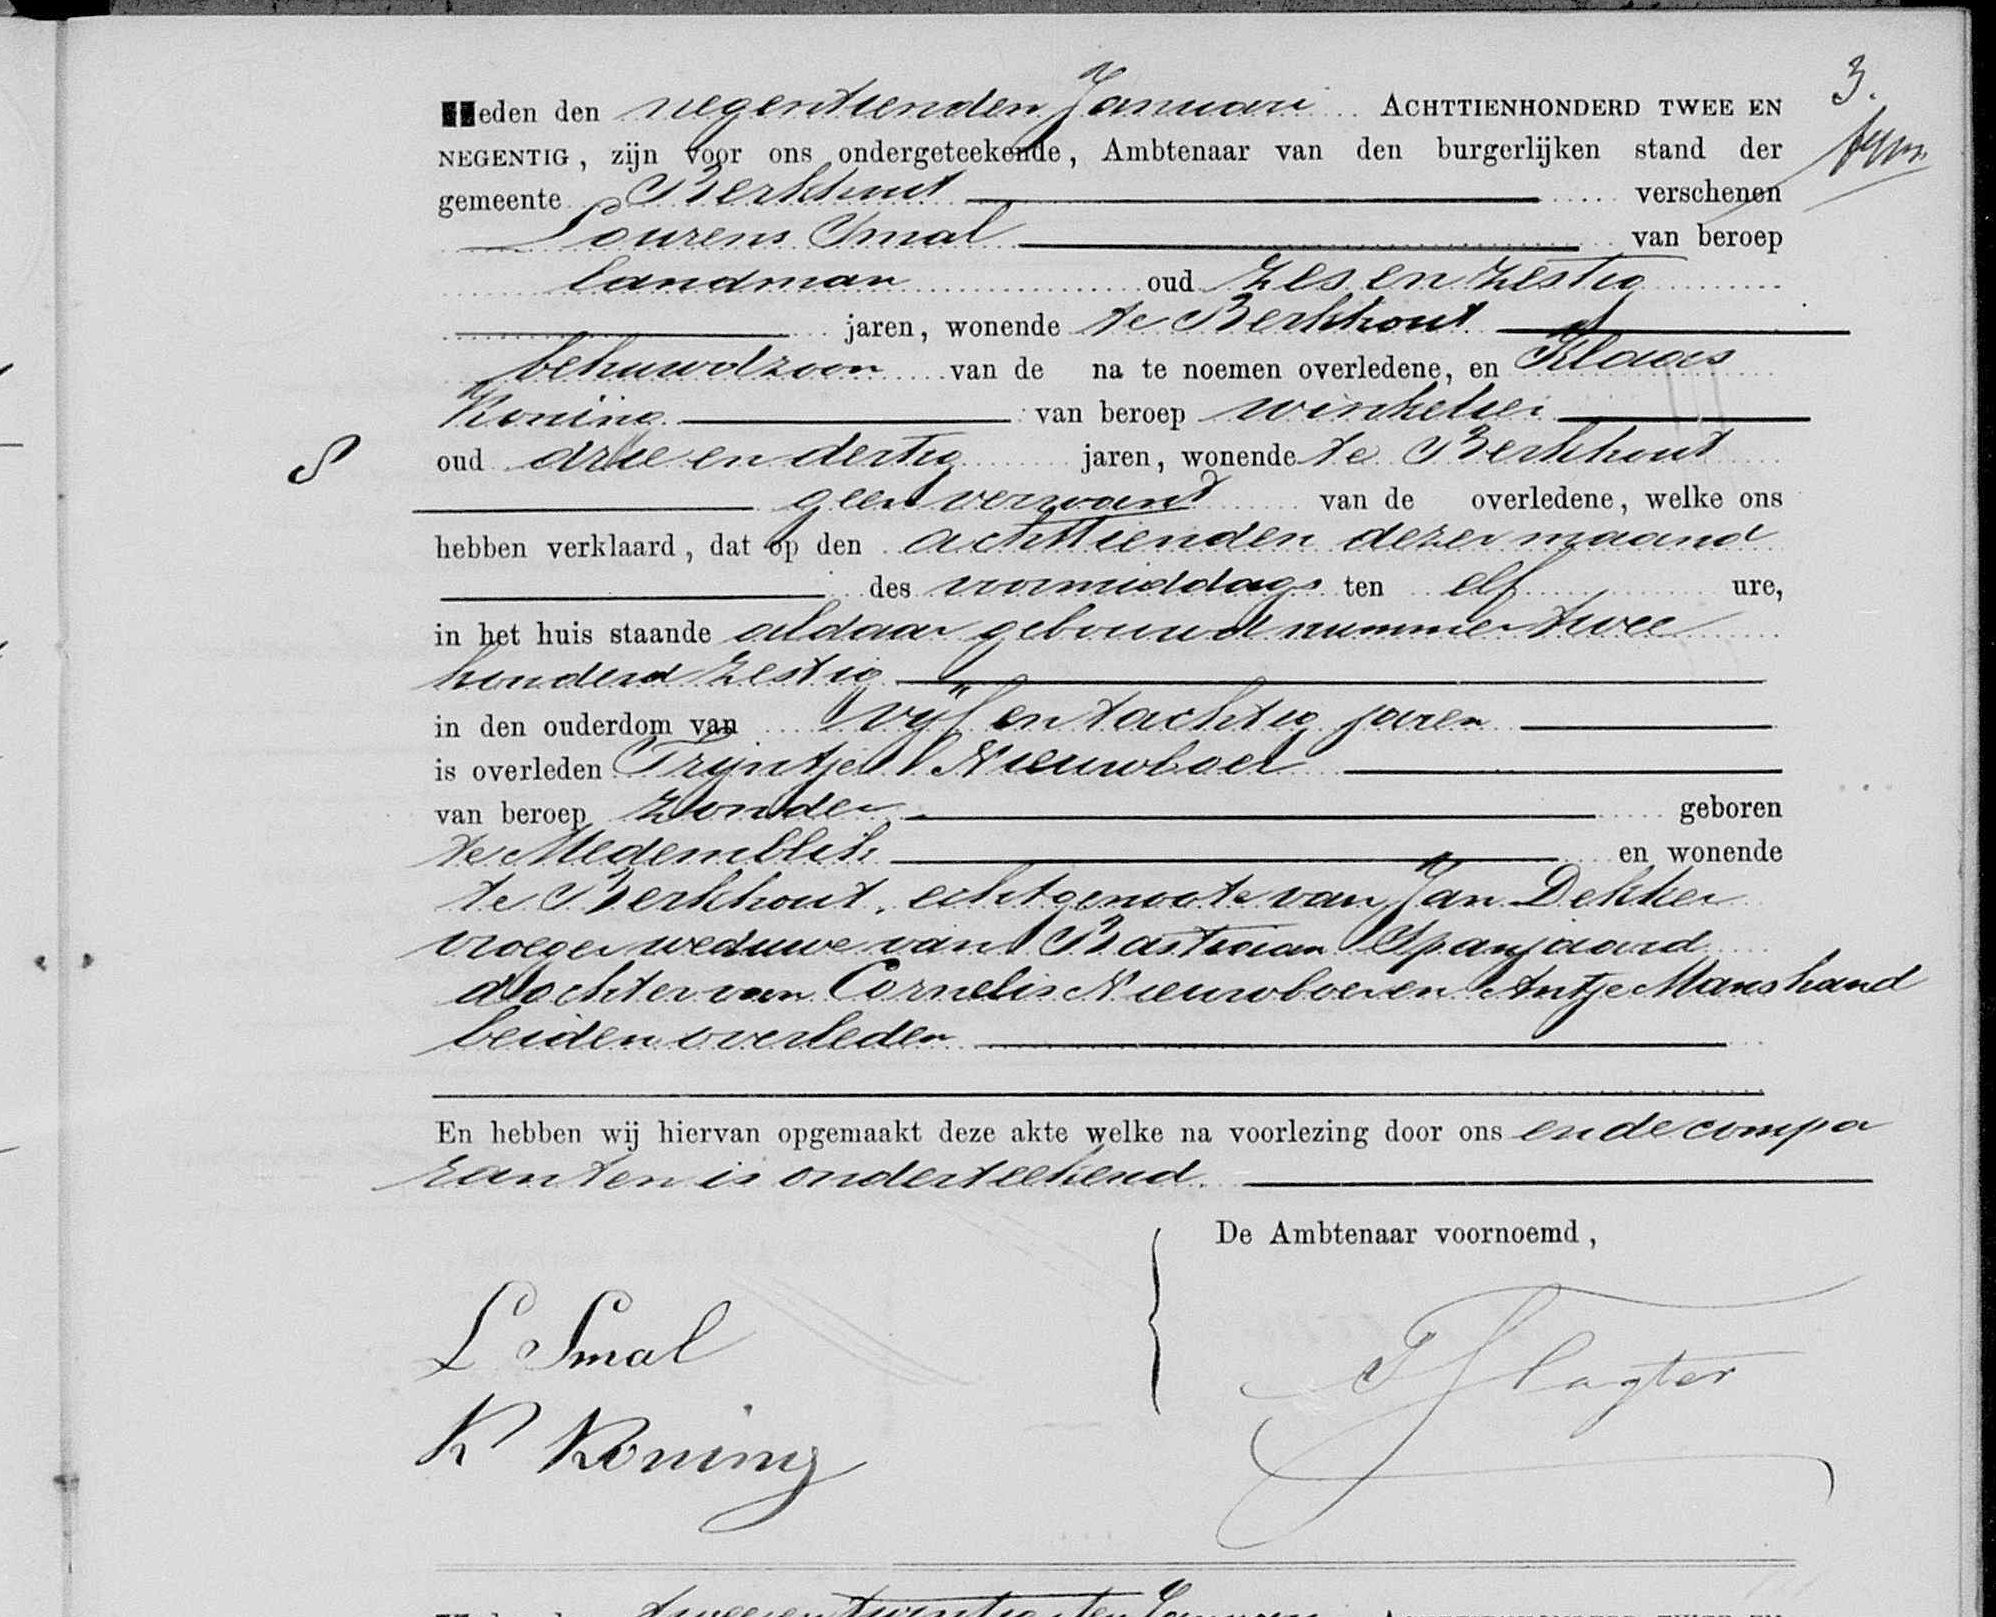 3.
Heden den negentienden Januari ACHTTIENHONDERD TWEE EN
NEGENTIG, zijn voor ons ondergeteekende, Ambtenaar van den burgerlijken stand der
gemeente Berkhout verschenen
Lourens Smal van beroep
landman oud zes en zestig
jaren, wonende te Berkhout
behuwdzoon van de na te noemen overledene, en Klaas
Koning van beroep winkelier
S oud drie en dertig jaren, wonende te Berkhout
geen verwant van de overledene, welke ons
hebben verklaard, dat op den achttienden dezer maand
des voormiddags ten elf ure,
in het huis staande aldaar gebouwd nummer twee
honderd zestig
in den ouderdom van vijf en tachtig jaren
is overleden Trijntje Nieuwboer
van beroep zonder geboren
te Medemblik en wonende
te Berkhout, echtgenoote van Jan Dekker
vroeger weduwe van Bastiaan Spanjaard
dochter van Cornelis Nieuwboer en Antje Manshand
beiden overleden
En hebben wij hiervan opgemaakt deze akte welke na voorlezing door ons en de compa
ranten is onderteekend.
De Ambtenaar voornoemd,
L Smal
Slagter
K Koning